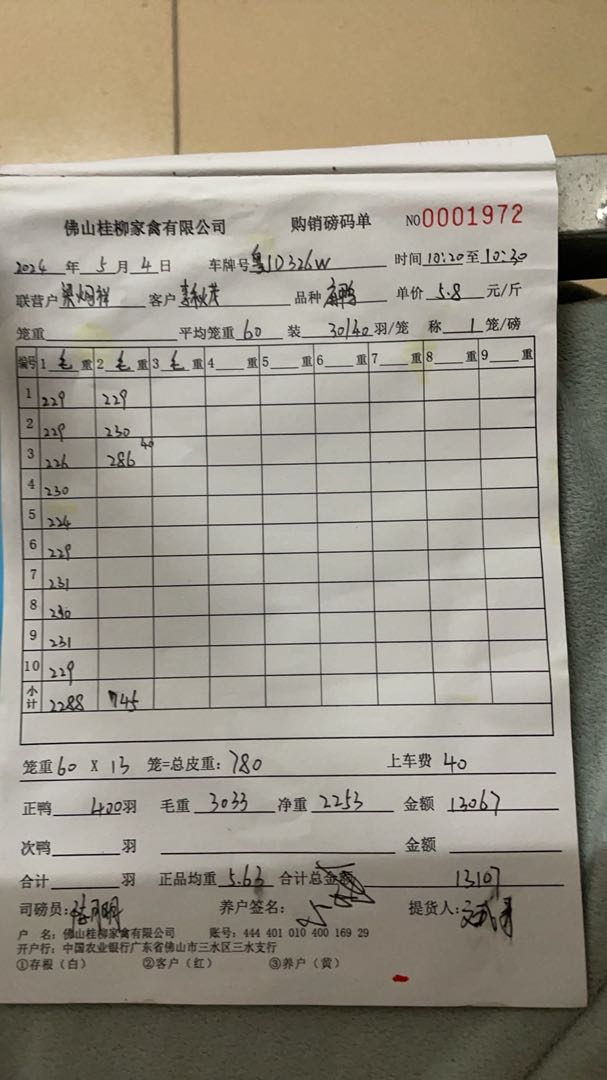 佛山桂柳家禽有限公司 购销磅码单 NO0001972
2024 年 5 月 4 日 车牌号 粤JD326W 时间 10:20 至 10:30
联营户 梁炯祥 客户 李秋茂 品种 单价 5.8 元/斤
笼重 平均笼重 60 装 30/40 羽/笼 称 1 笼/磅
编号 1 毛 重 2 毛 重 3 毛 重 4 重 5 重 6 重 7 重 8 重 9 重
1 229 229
2 229 230
3 226 286 40
4 230
5 224
6 229
7 231
8 230
9 231
10 229
小计 2288 745
笼重 60 X 13 笼=总皮重: 780 上车费 40
正鸭 400 羽 毛重 3033 净重 2253 金额 13067
次鸭 羽 金额
合计 羽 正品均重 5.63 合计总金额 13107
司磅员: 养户签名: 提货人:
户 名: 佛山桂柳家禽有限公司 账号: 444 401 010 400 169 29
开户行: 中国农业银行广东省佛山市三水区三水支行
①存根（白） ②客户（红） ③养户（黄）